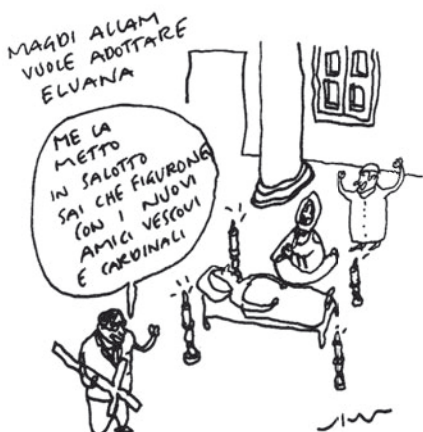 MAGDI ALLAM
VUOLE ADOTTARE
ELUANA
ME LA
METTO
IN SALOTTO
SAI CHE FIGURONE
CON I NUOVI
AMICI VESCOVI
E CARDINALI